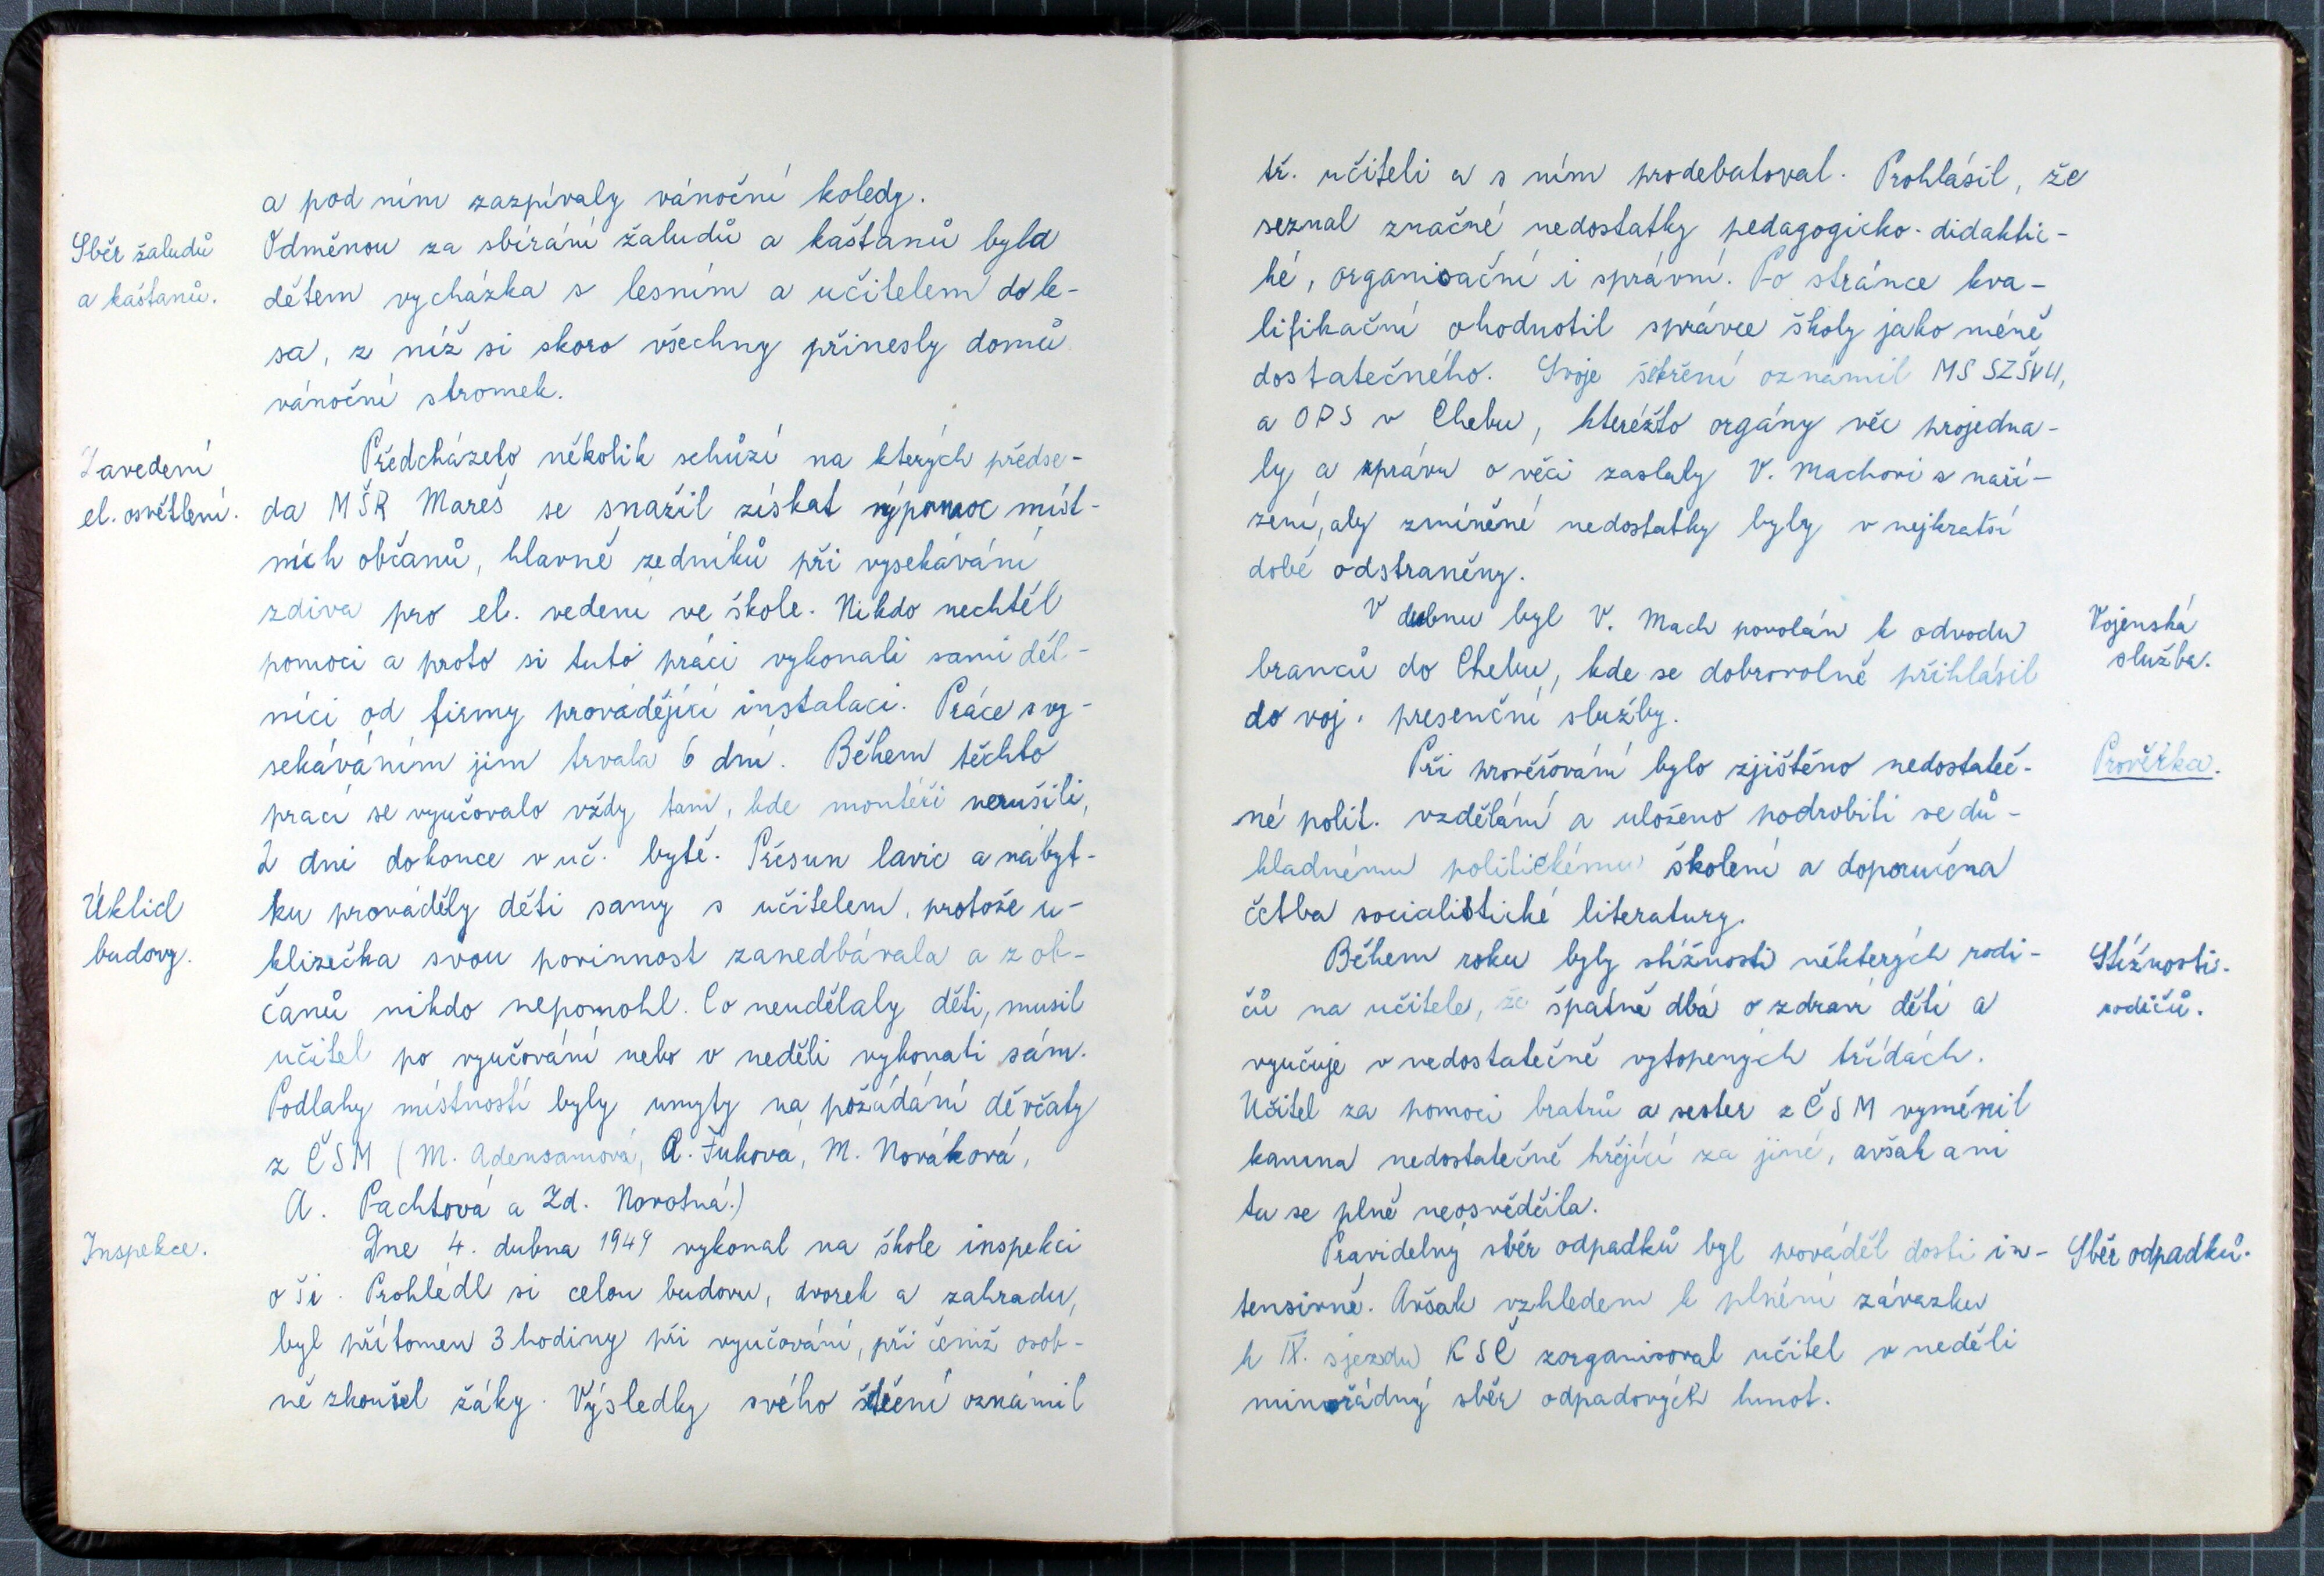 a pod ním zazpívaly vánoční koledy.
Sběr žaludů
a kaštanů.
Odměnou za sbírání žaludů a kaštanů byla
dětem vycházka s lesním a učitelem do le-
sa, z níž si skoro všechny přinesly domů
vánoční stromek.
Zavedení
el. osvětlení.
Předcházelo několik schůzí na kterých předse-
da MŠR Mareš se snažil získat výpomoc míst-
ních občanů, hlavně zedníků při vysekávání
zdiva pro el. vedení ve škole. Nikdo nechtěl
pomoci a proto si tuto práci vykonali sami děl-
níci od firmy provádějící instalaci. Práce s vy-
sekáváním jim trvala 6 dní. Během těchto
prací se vyučovalo vždy tam, kde montéři nerušili,
2 dni dokonce v uč. bytě. Přesun lavic a nábyt-
Úklid
budovy.
ku prováděly děti samy s učitelem, protože u-
klizečka svou povinnost zanedbávala a z ob-
čanů nikdo nepomohl. Co neudělaly děti, musil
učitel po vyučování nebo v neděli vykonati sám.
Podlahy místností byly umyty na požádání děvčaty
z ČSM (M. Adensamová, A. Fuková, M. Nováková,
A. Pachtová a Zd. Novotná.)
Inspekce.
Dne 4. dubna 1949 vykonal na škole inspekci
o ši. Prohlédl si celou budovu, dvorek a zahradu,
byl přítomen 3 hodiny při vyučování, při čemž osob-
ně zkoušel žáky. Výsledky svého šetření oznámil
tř. učiteli a s ním prodebatoval. Prohlásil, že
seznal značné nedostatky pedagogicko-didaktic-
ké, organisační i správní. Po stránce kva-
lifikační ohodnotil správce školy jako méně
dostatečného. Svoje šetření oznámil MS SZŠVU,
a OPS v Chebu, kteréžto orgány věc projedna-
ly a zprávu o věci zaslaly V. Machovi s naří-
zení, aby zmíněné nedostatky byly v nejkratší
době odstraněny.
V dubnu byl V. Mach povolán k odvodu
branců do Chebu, kde se dobrovolně přihlásil
do voj. presenční služby.
Vojenská
služba.
Při prověřování bylo zjištěno nedostateč-
né polit. vzdělání a uloženo podrobiti se dů-
kladnému politickému školení a doporučna
četba socialistické literatury.
Prověrka.
Během roku byly stížnosti některých rodi-
čů na učitele, že špatně dbá o zdraví dětí a
vyučuje v nedostatečně vytopených třídách.
Učitel za pomoci bratrů a sester z ČSM vyměnil
kamna nedostatečně hřející za jiné, avšak ani
ta se plně neosvědčila.
Stížnosti
rodičů.
Pravidelný sběr odpadků byl prováděl dosti in-
tensivně. Avšak vzhledem k plnění závazku
k IX. sjezdu KSČ zorganisoval učitel v neděli
mimořádný sběr odpadových hmot.
Sběr odpadků.